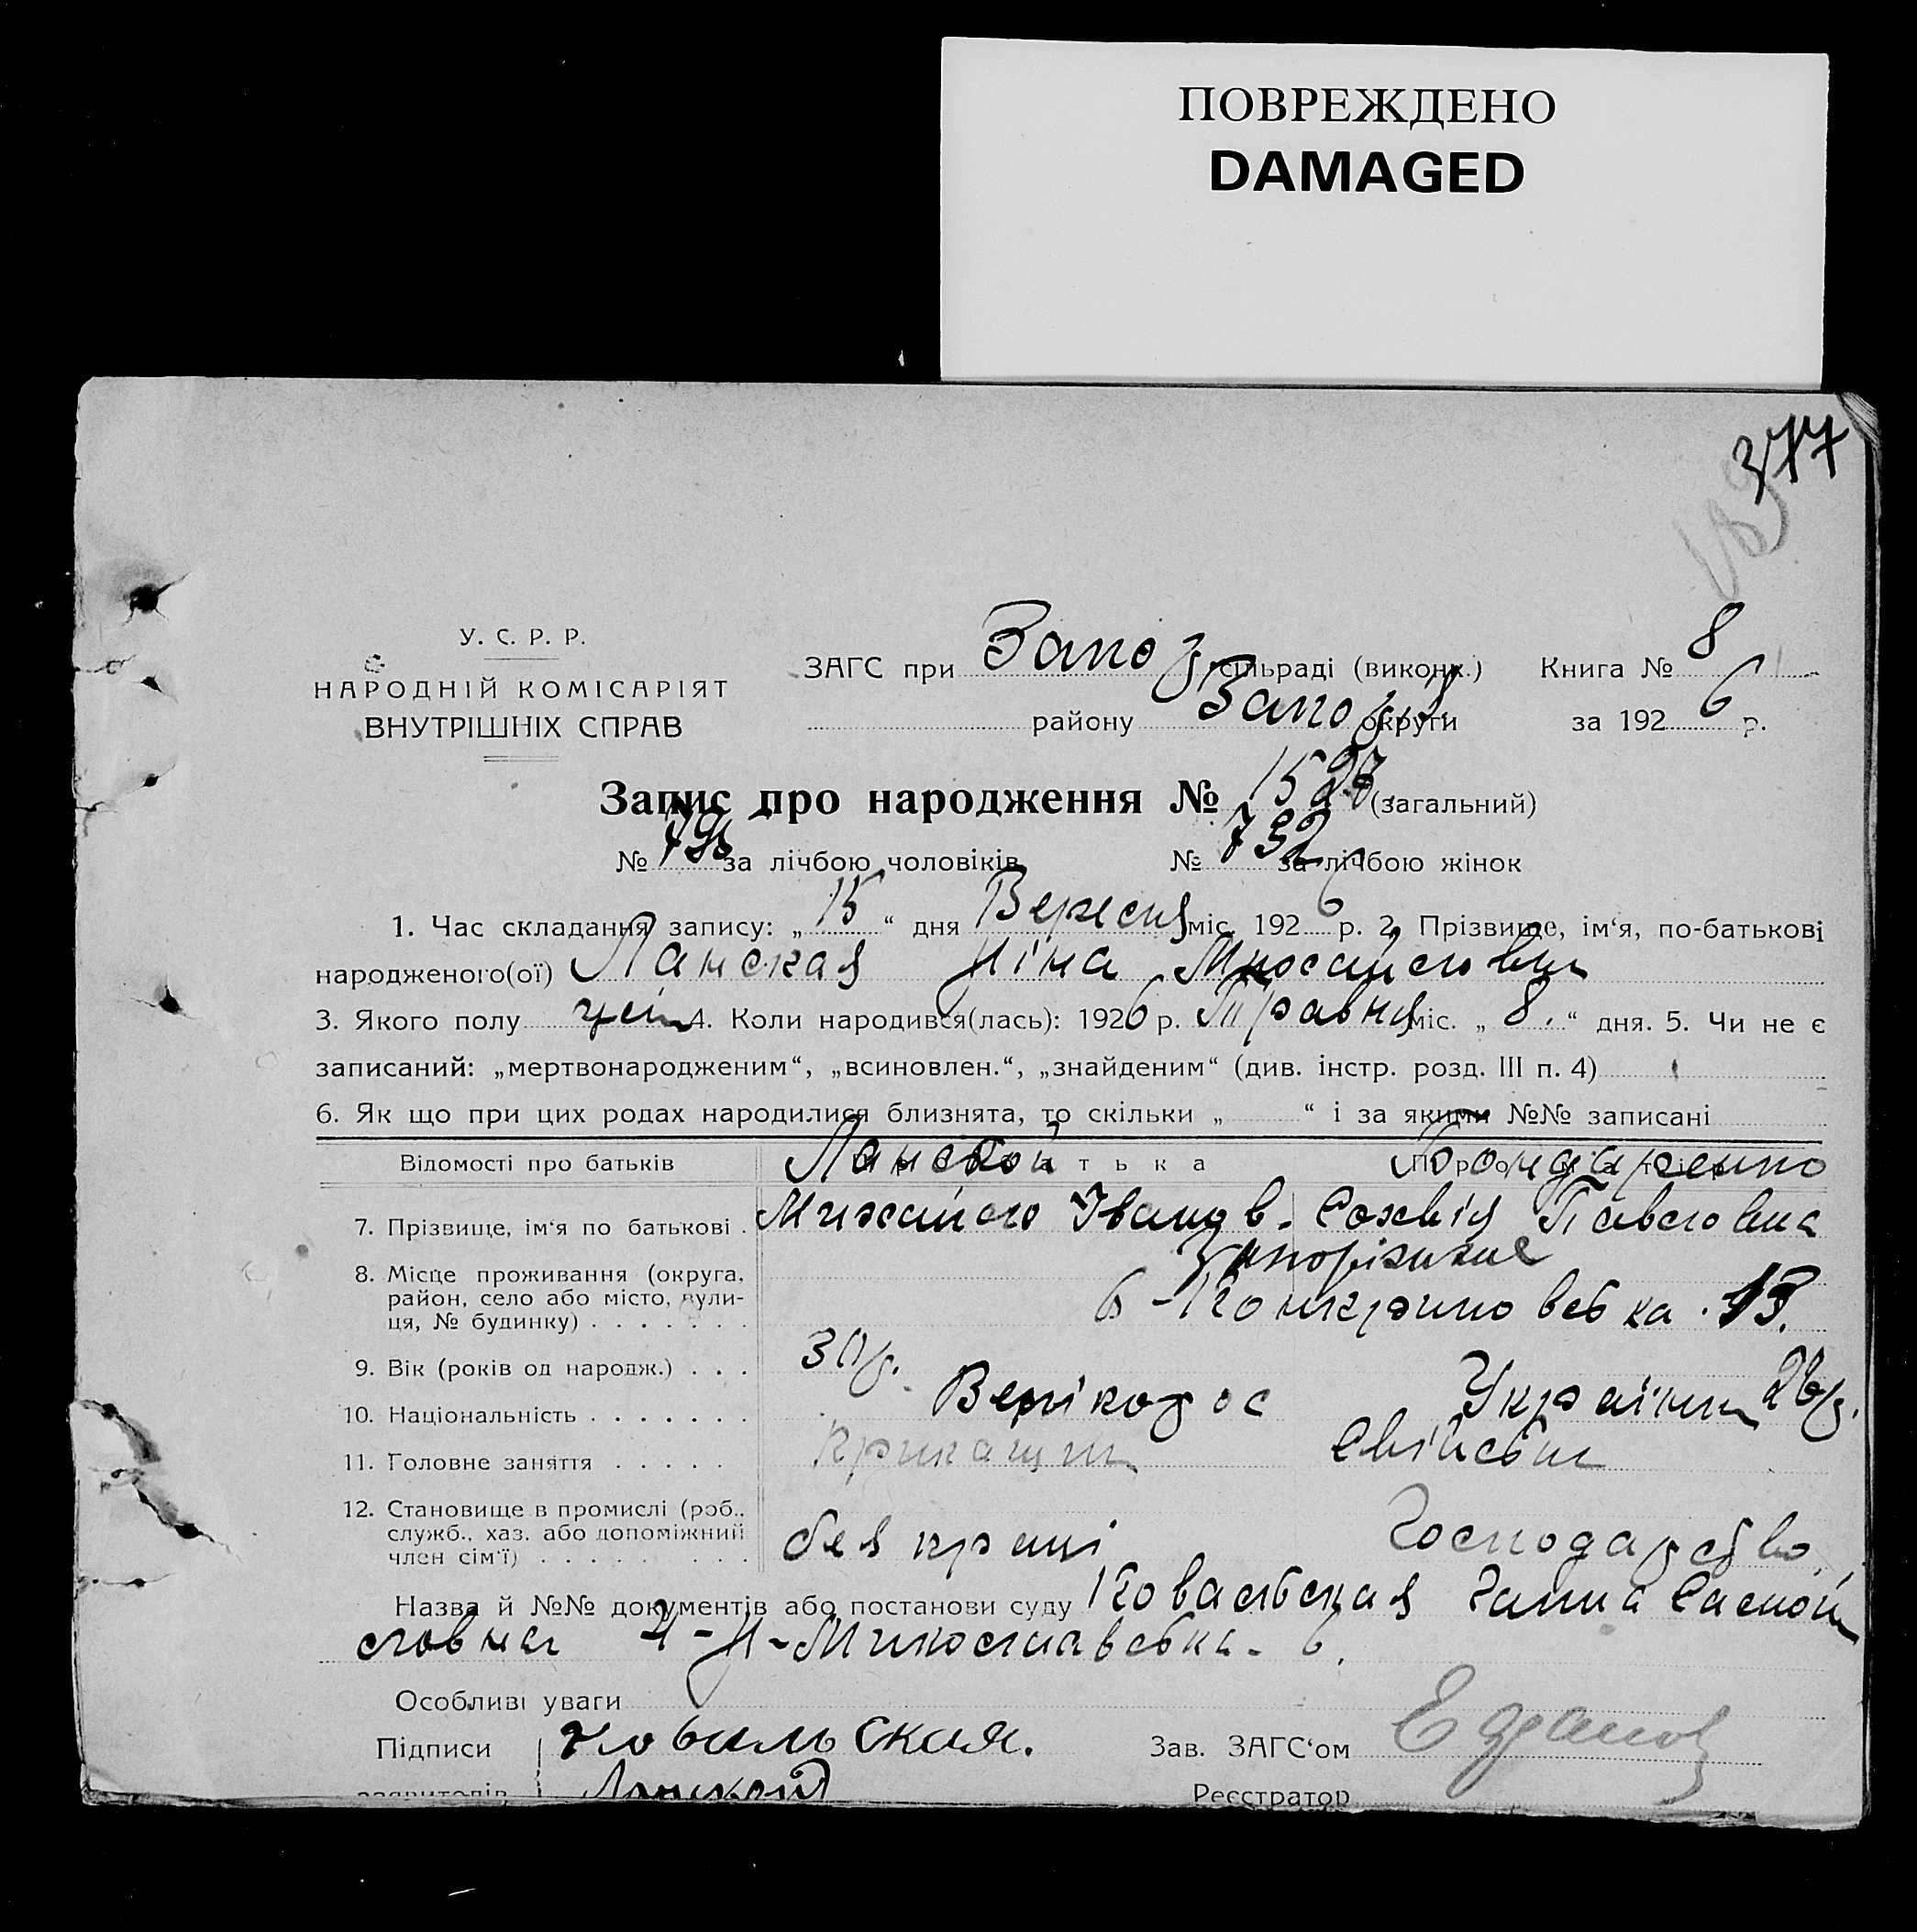 ПОВРЕЖДЕНО
DAMAGED
377
У. С. Р. Р.
НАРОДНІЙ КОМІСАРІЯТ
ВНУТРІШНІХ СПРАВ
ЗАГС при Запоз сільраді (виконк.) Книга № 8
району Запоз округи за 1926 р.
Запис про народження № (загальний)
№ за лічбою чоловіків № 732 за лічбою жінок
1. Час складання запису: „ 15 “ дня Вересня міс. 1926 р. 2. Прізвище, ім‘я, по-батькові
народженого(ої) Ланская Ніна
3. Якого полу 4. Коли народився(лась): 1926 р. Травня міс. „ 8. “ дня. 5. Чи не є
записаний: „мертвонародженим“, „всиновлен.“, „знайденим“ (див. інстр. розд. III п. 4)
6. Як що при цих родах народилися близнята, то скільки „ “ і за якими №№ записані
Відомості про батьків Ланской Бондаренко
7. Прізвище, ім‘я по батькові . Михайло Іванов. Софія Павловна
8. Місце проживання (округа, Запоріжжє
район, село або місто, вули-
ця, № будинку) . . . . . . . 13.
9. Вік (років од народж.) . . . 30р. 26р.
10. Національність . . . . . . . Велікорос Українк
11. Головне заняття . . . . . Прикащик
12. Становище в промислі (роб.,
служб., хаз. або допоміжний без праці Господарство
член сім‘ї) . . . . . . . . .
Назва й №№ документів або постанови суду Ковальская Ганна
Особливі уваги
Підписи Ковальская. Зав. ЗАГС‘ом
заявителів Ланской Реєстратор